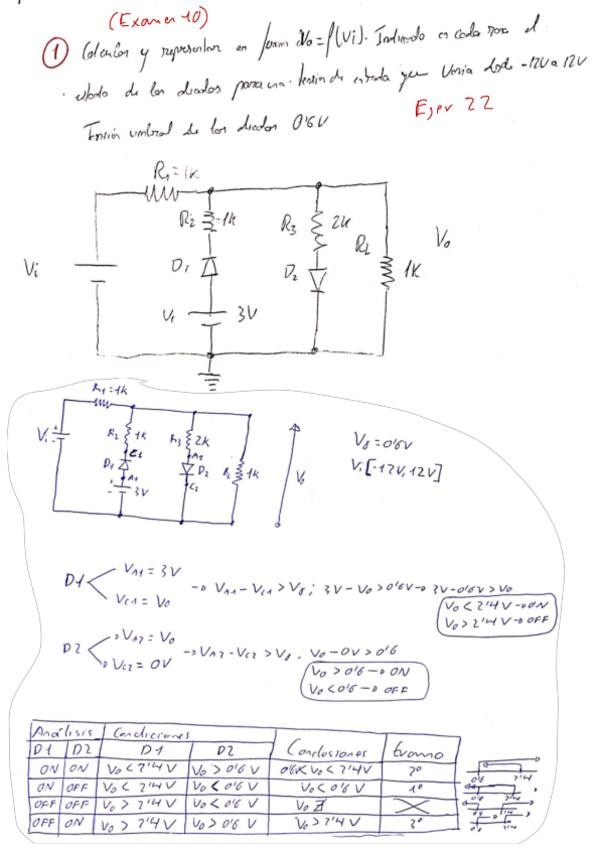 (Examen 10)
① Calcular y representar en forma Vo=f(Vi). Indicando en cada zona el
estado de los diodos para una tensión de entrada que varia desde -12V a 12V
Ejer 22
Tensión umbral de los diodos 0'6V
R1=1K
R2=1K
R3 2K
RL
1K
Vo
Vi
D1
D2
V1
3V
R1=1K
Vi
R2 1K
C1
D1
A1
3V
R3 2K
A2
D2
C2
RL 1K
Vo
Vγ=0'6V
Vi[-12V,12V]
D1
VA1=3V
VC1=Vo
→ VA1-VC1>Vγ; 3V-Vo>0'6V→ 3V-0'6V>Vo
Vo<2'4V→ON
Vo>2'4V→OFF
D2
VA2=Vo
VC2=0V
→ VA2-VC2>Vγ. Vo-0V>0'6
Vo>0'6→ON
Vo<0'6→OFF
Análisis Condiciones
D1 D2 D1 D2 Conclusiones Tramo
ON ON Vo<2'4V Vo>0'6V 0'6<Vo<2'4V 2º
ON OFF Vo<2'4V Vo<0'6V Vo<0'6V 1º
OFF OFF Vo>2'4V Vo<0'6V Vo ∄
OFF ON Vo>2'4V Vo>0'6V Vo>2'4V 3º
0'6 2'4
0'6 2'4
0'6 2'4
0'6 2'4